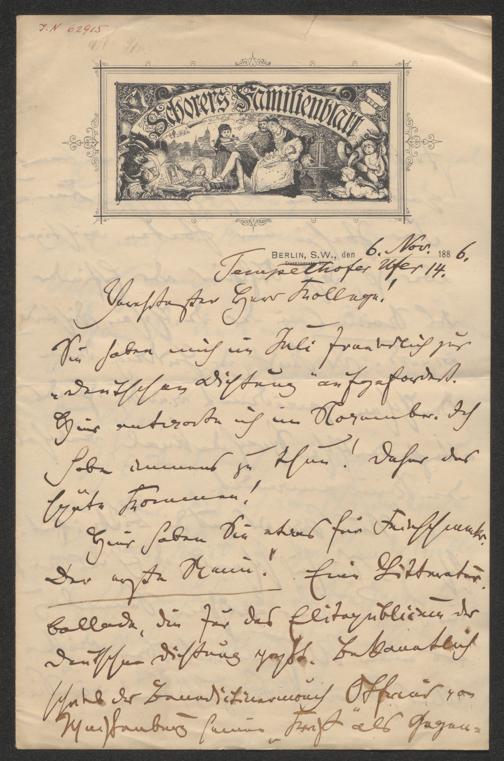 J.N 62915
Schorers Familienblatt
BERLIN, S.W., den 6. Nov. 1886.
Tempelhofer Ufer 14.
Verehrtester Herr Kollege!
Sie haben mich im Juli freundlich zur
„Deutschen Dichtung" aufgefordert.
Hier antworte ich im November. Ich
habe immens zu thun! Daher das
späte Kommen!
Hier haben Sie etwas für Feinschmecker.
Der erste Reim." Eine Litteratur-
ballade, die für das Elitepublicum der
Deutschen Dichtung paßt. Bekanntlich
schrieb der Benedictinermönch Otfried von
Weißenburg seinen „Krist" als Gegen-